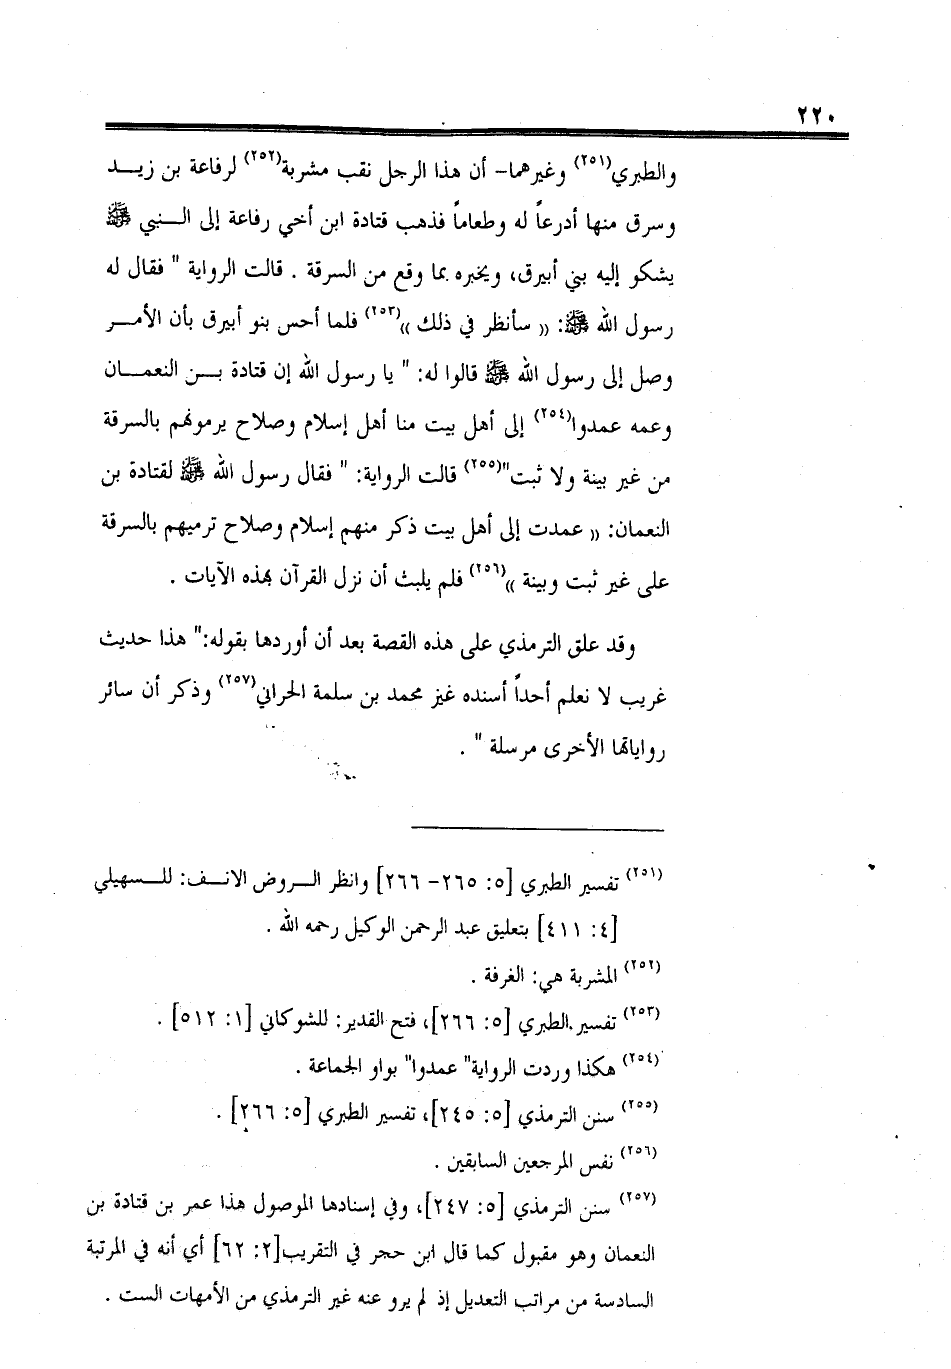 ٢٢٠
والطبري(٢٥١) وغيرهما- أن هذا الرجل نقب مشربة(٢٥٢) لرفاعة بن زيــد
وسرق منها أدرعاً له وطعاماً فذهب قتادة ابن أخي رفاعة إلى النـبي ﷺ
يشكو إليه بني أبيرق، ويخبره بما وقع من السرقة . قالت الرواية " فقال له
رسول الله ﷺ: « سأنظر في ذلك »(٢٥٣) فلما أحس بنو أبيرق بأن الأمــر
وصل إلى رسول الله ﷺ قالوا له: " يا رسول الله إن قتادة بــن النعمــان
وعمه عمدوا(٢٥٤) إلى أهل بيت منا أهل إسلام وصلاح يرمونهم بالسرقة
من غير بينة ولا ثبت"(٢٥٥) قالت الرواية: " فقال رسول الله ﷺ لقتادة بن
النعمان: « عمدت إلى أهل بيت ذكر منهم إسلام وصلاح ترميهم بالسرقة
على غير ثبت وبينة »(٢٥٦) فلم يلبث أن نزل القرآن بهذه الآيات .
وقد علق الترمذي على هذه القصة بعد أن أوردها بقوله:" هذا حديث
غريب لا نعلم أحداً أسنده غيز محمد بن سلمة الحراني(٢٥٧) وذكر أن سائر
رواياتها الأخرى مرسلة " .
(٢٥١) تفسير الطبري [٥: ٢٦٥- ٢٦٦] وانظر الــروض الانــف: للــسهيلي
[٤: ٤١١] بتعليق عبد الرحمن الوكيل رحمه الله .
(٢٥٢) المشربة هي: الغرفة .
(٢٥٣) تفسير الطبري [٥: ٢٦٦]، فتح القدير: للشوكاني [١: ٥١٢] .
(٢٥٤) هكذا وردت الرواية" عمدوا" بواو الجماعة .
(٢٥٥) سنن الترمذي [٥: ٢٤٥]، تفسير الطبري [٥: ٢٦٦] .
(٢٥٦) نفس المرجعين السابقين .
(٢٥٧) سنن الترمذي [٥: ٢٤٧]، وفي إسنادها الموصول هذا عمر بن قتادة بن
النعمان وهو مقبول كما قال ابن حجر في التقريب[٢: ٦٢] أي أنه في المرتبة
السادسة من مراتب التعديل إذ لم يرو عنه غير الترمذي من الأمهات الست .